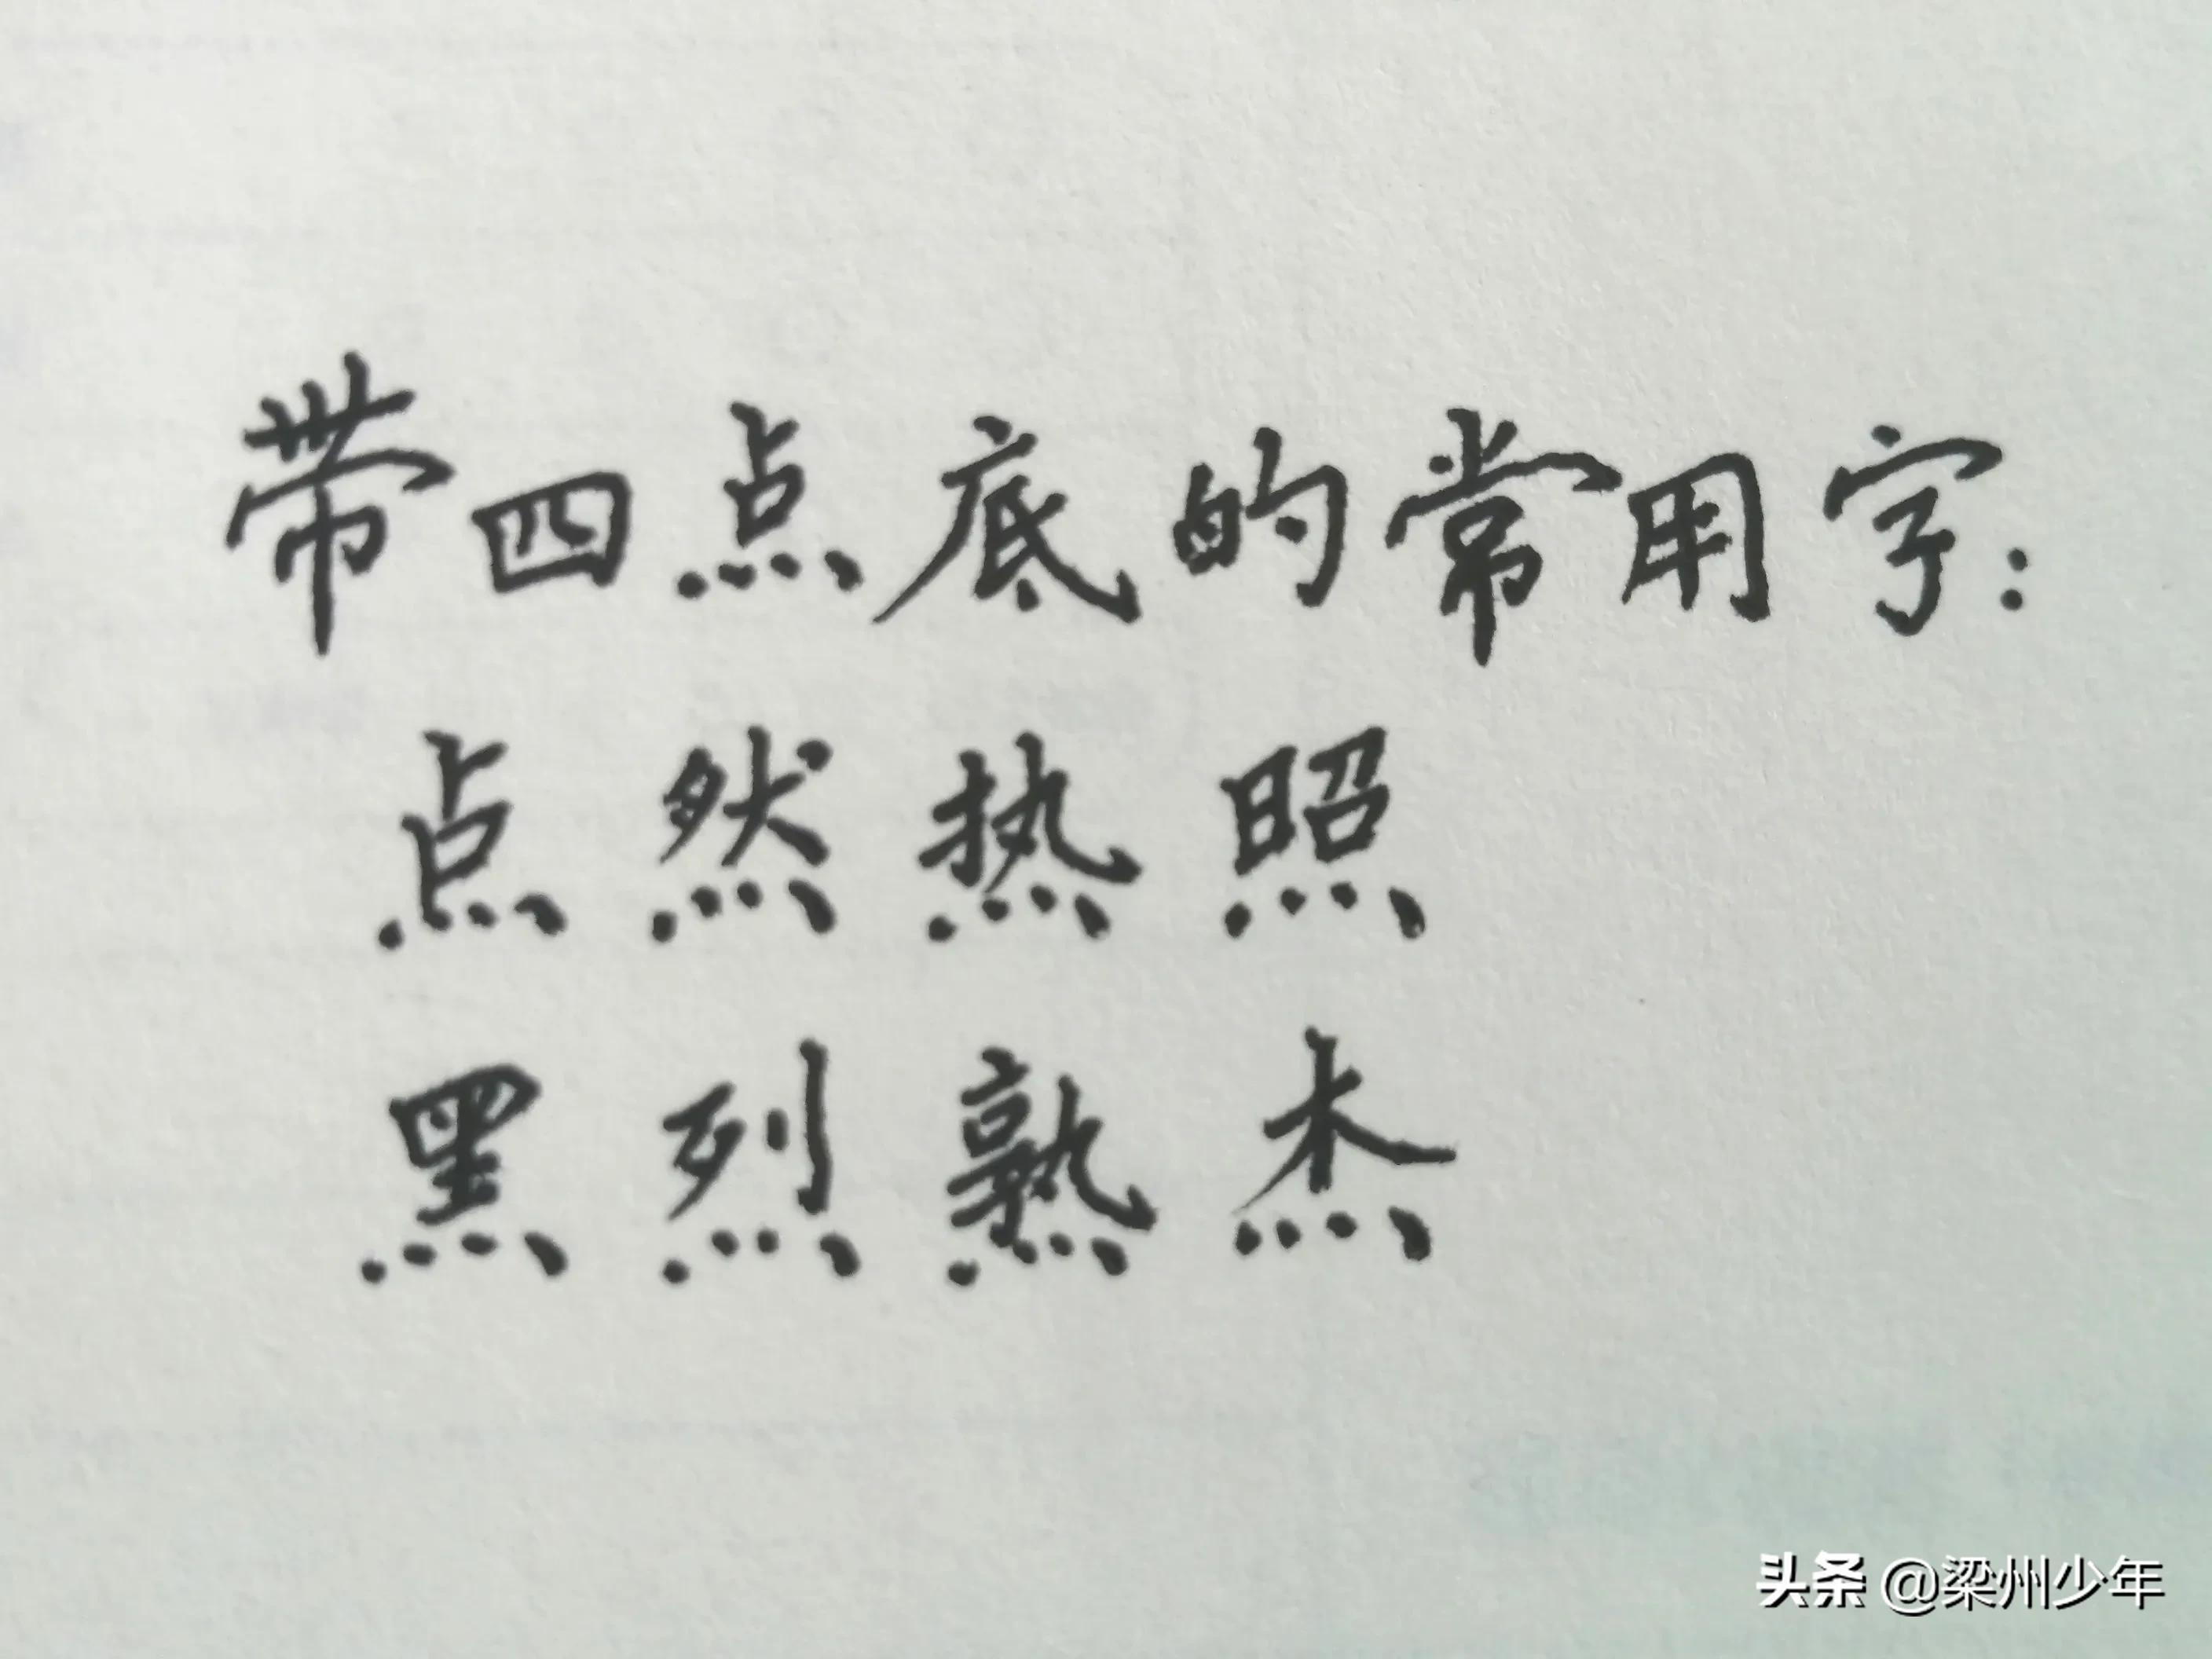 带四点底的常用字：
点 然 热 照
黑 烈 熟 杰
头条 @梁州少年